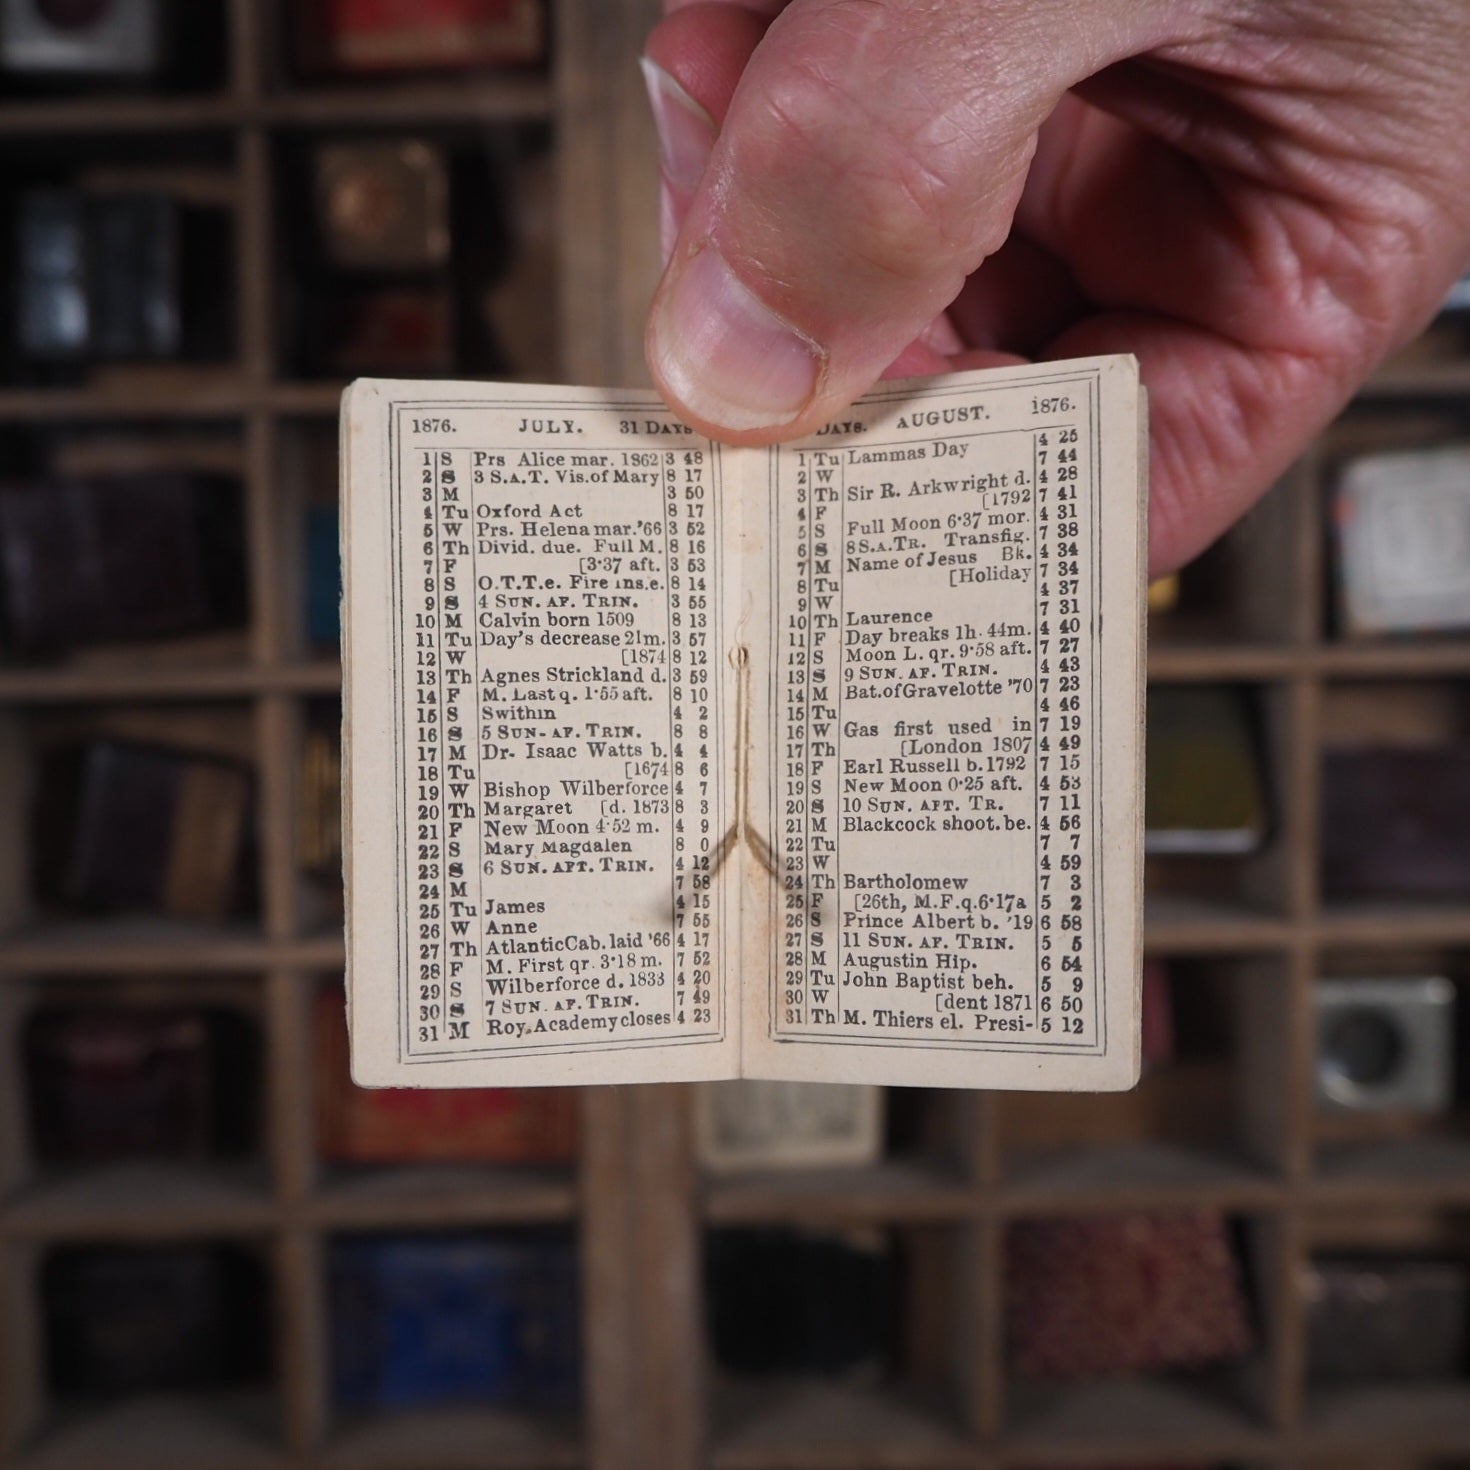 1876. JULY. 31 DAYS
1 S Prs Alice mar. 1862 3 48
2 S 3 S.A.T. Vis.of Mary 8 17
3 M 3 50
4 Tu Oxford Act 8 17
5 W Prs. Helena mar.'66 3 52
6 Th Divid. due. Full M. 8 16
7 F [3·37 aft. 3 53
8 S O.T.T.e. Fire ins.e. 8 14
9 S 4 SUN. AF. TRIN. 3 55
10 M Calvin born 1509 8 13
11 Tu Day's decrease 21m. 3 57
12 W [1874 8 12
13 Th Agnes Strickland d. 3 59
14 F M. Last q. 1·55 aft. 8 10
15 S Swithin 4 2
16 S 5 SUN- AF. TRIN. 8 8
17 M Dr- Isaac Watts b. 4 4
18 Tu [1674 8 6
19 W Bishop Wilberforce 4 7
20 Th Margaret [d. 1873 8 3
21 F New Moon 4·52 m. 4 9
22 S Mary Magdalen 8 0
23 S 6 SUN. AFT. TRIN. 4 12
24 M 7 58
25 Tu James 4 15
26 W Anne 7 55
27 Th Atlantic Cab. laid '66 4 17
28 F M. First qr. 3·18 m. 7 52
29 S Wilberforce d. 1833 4 20
30 S 7 SUN. AF. TRIN. 7 49
31 M Roy. Academy closes 4 23
DAYS. AUGUST. 1876.
1 Tu Lammas Day 4 25
2 W 7 44
3 Th Sir R. Arkwright d. 4 28
4 F [1792 7 41
5 S Full Moon 6·37 mor. 4 31
6 S 8 S.A.TR. Transfig. 7 38
7 M Name of Jesus Bk. 4 34
8 Tu [Holiday 7 34
9 W 4 37
10 Th Laurence 7 31
11 F Day breaks 1h. 44m. 4 40
12 S Moon L. qr. 9·58 aft. 7 27
13 S 9 SUN. AF. TRIN. 4 43
14 M Bat. of Gravelotte '70 7 23
15 Tu 4 46
16 W Gas first used in 7 19
17 Th [London 1807 4 49
18 F Earl Russell b. 1792 7 15
19 S New Moon 0·25 aft. 4 53
20 S 10 SUN. AFT. TR. 7 11
21 M Blackcock shoot. be. 4 56
22 Tu 7 7
23 W 4 59
24 Th Bartholomew 7 3
25 F [26th, M.F.q.6·17a 5 2
26 S Prince Albert b. '19 6 58
27 S 11 SUN. AF. TRIN. 5 5
28 M Augustin Hip. 6 54
29 Tu John Baptist beh. 5 9
30 W [dent 1871 6 50
31 Th M. Thiers el. Presi- 5 12